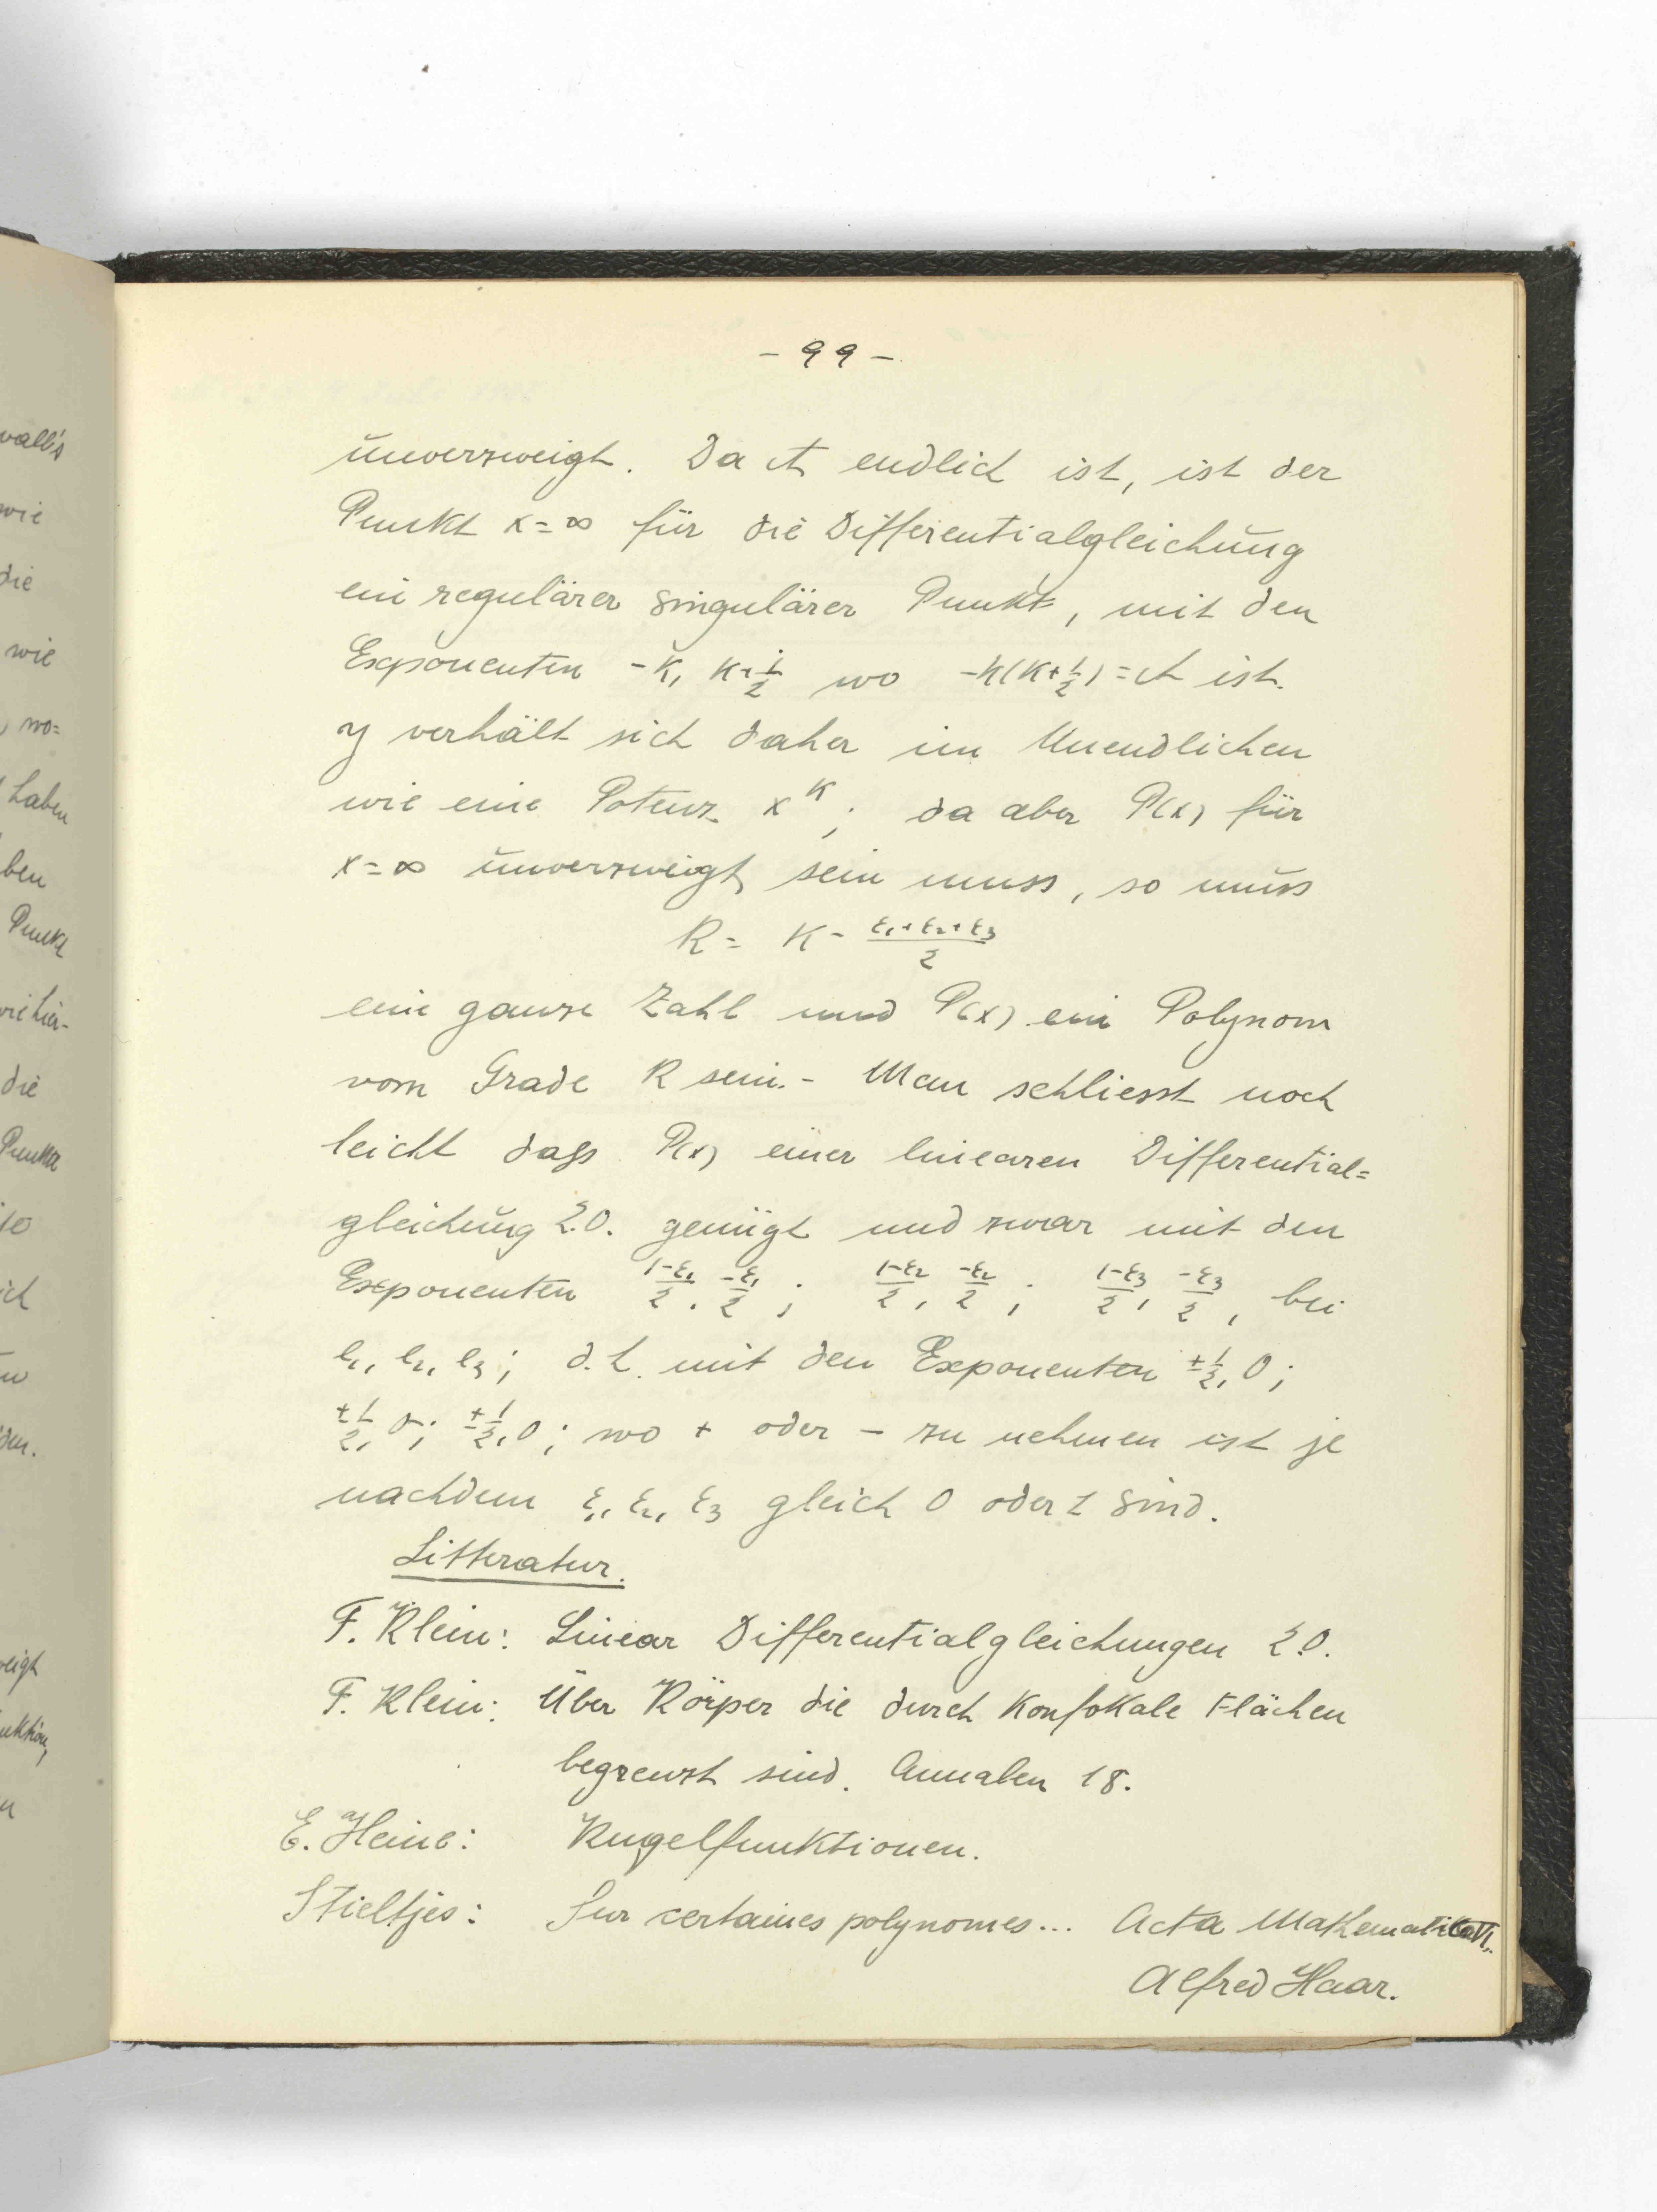 - 99 -
unverzweigt. Da A endlich ist, ist der
Punkt x=∞ für die Differentialgleichung
ein regulärer singulärer Punkt, mit den
Exponenten -K, K+1/2 wo -K(K+1/2)=A ist.
y verhält sich daher im Unendlichen
wie eine Potenz x^K; da aber P(x) für
x=∞ unverzweigt sein muss, so muss
R = K - (ε1+ε2+ε3)/2
eine ganze Zahl und P(x) ein Polynom
vom Grade R sein.- Man schliesst noch
leicht dass P(x) einer linearen Differential=
gleichung 2.O. genügt und zwar mit den
Exponenten (1-ε1)/2, -ε1/2; (1-ε2)/2, -ε2/2; (1-ε3)/2, -ε3/2, bei
e1, e2, e3; d.h. mit den Exponenten ±1/2, 0;
±1/2, 0; ±1/2, 0; wo + oder - zu nehmen ist je
nachdem ε1, ε2, ε3 gleich 0 oder 1 sind.
Litteratur.
F. Klein: Linear Differentialgleichungen 2.O.
F. Klein: Über Körper die durch Konfokale Flächen
begrenzt sind. Annalen 18.
E. Heine: Kugelfunktionen.
Stieltjes: Sur certaines polynomes... Acta
Alfred Haar.
vall's
wie
die
wie
, wo=
haben
ben
Punkt
die
Punkte
ich